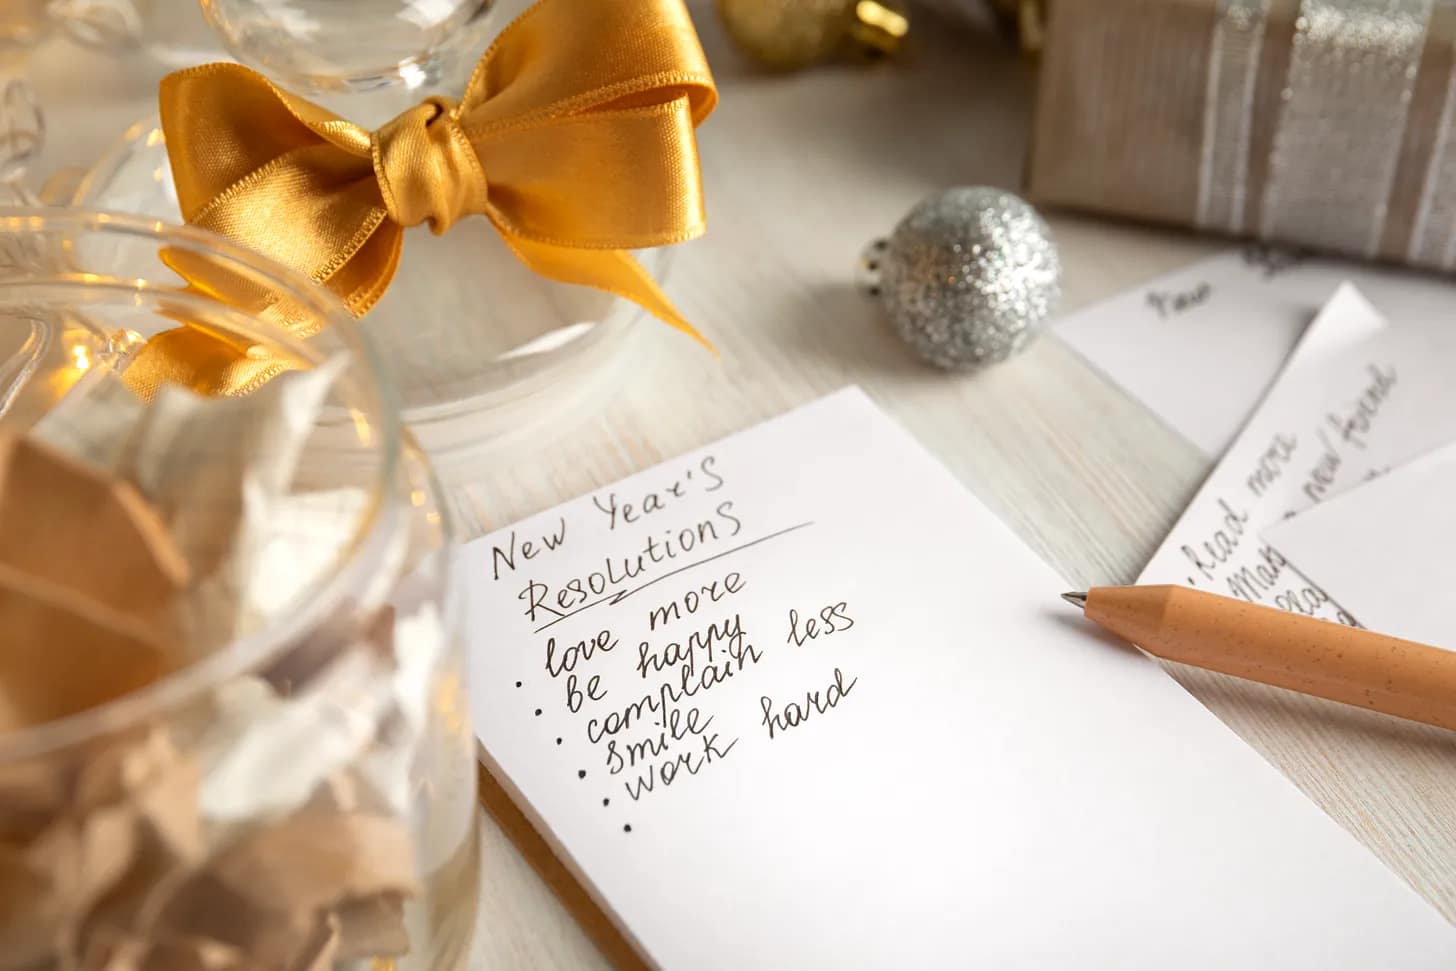 New Year's
Resolutions
• love more
• be happy
• complain less
• smile
• work hard
•
Read more
new